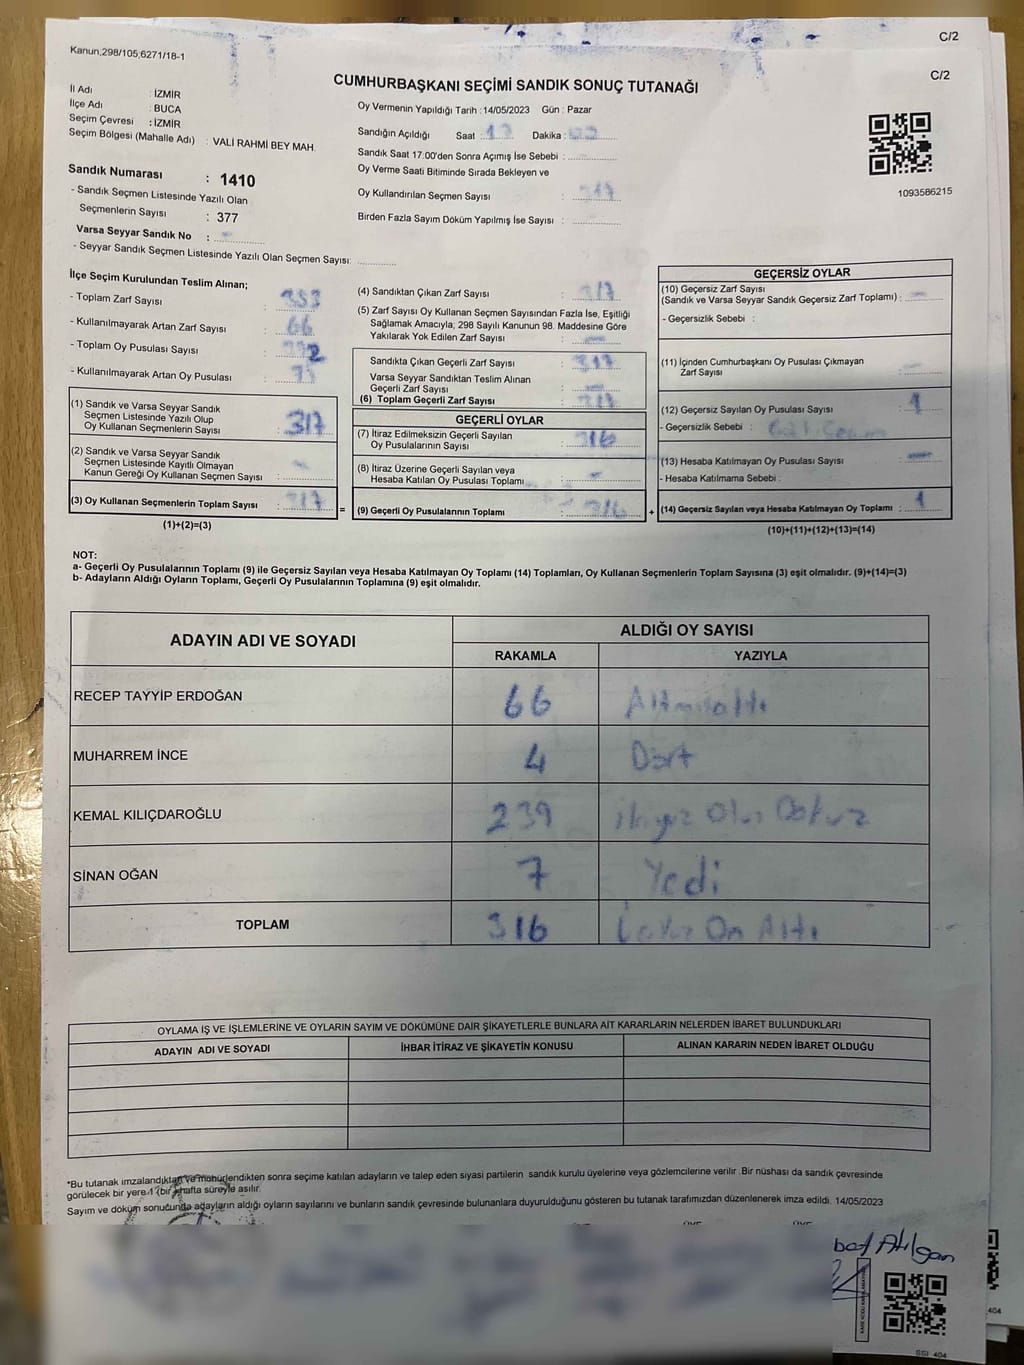 C/2
Kanun,298/105;6271/18-1
C/2
CUMHURBAŞKANI SEÇİMİ SANDIK SONUÇ TUTANAĞI
İl Adı : İZMİR
İlçe Adı : BUCA
Seçim Çevresi : İZMİR
Seçim Bölgesi (Mahalle Adı) : VALİ RAHMİ BEY MAH.
Oy Vermenin Yapıldığı Tarih : 14/05/2023 Gün : Pazar
Sandığın Açıldığı Saat : 17 Dakika :
Sandık Saat 17:00'den Sonra Açımış İse Sebebi :
Oy Verme Saati Bitiminde Sırada Bekleyen ve
Oy Kullandırılan Seçmen Sayısı : 317
Birden Fazla Sayım Döküm Yapılmış İse Sayısı :
1093586215
Sandık Numarası : 1410
- Sandık Seçmen Listesinde Yazılı Olan
Seçmenlerin Sayısı : 377
Varsa Seyyar Sandık No : -
- Seyyar Sandık Seçmen Listesinde Yazılı Olan Seçmen Sayısı:
İlçe Seçim Kurulundan Teslim Alınan;
- Toplam Zarf Sayısı : 383
- Kullanılmayarak Artan Zarf Sayısı : 66
- Toplam Oy Pusulası Sayısı :
- Kullanılmayarak Artan Oy Pusulası :
(1) Sandık ve Varsa Seyyar Sandık
Seçmen Listesinde Yazılı Olup
Oy Kullanan Seçmenlerin Sayısı : 317
(2) Sandık ve Varsa Seyyar Sandık
Seçmen Listesinde Kayıtlı Olmayan
Kanun Gereği Oy Kullanan Seçmen Sayısı : -
(3) Oy Kullanan Seçmenlerin Toplam Sayısı : 317
(1)+(2)=(3)
=
(4) Sandıktan Çıkan Zarf Sayısı : 317
(5) Zarf Sayısı Oy Kullanan Seçmen Sayısından Fazla İse, Eşitliği
Sağlamak Amacıyla; 298 Sayılı Kanunun 98. Maddesine Göre
Yakılarak Yok Edilen Zarf Sayısı : -
Sandıkta Çıkan Geçerli Zarf Sayısı : 317
Varsa Seyyar Sandıktan Teslim Alınan
Geçerli Zarf Sayısı : -
(6) Toplam Geçerli Zarf Sayısı : 317
GEÇERLİ OYLAR
(7) İtiraz Edilmeksizin Geçerli Sayılan
Oy Pusulalarının Sayısı : 316
(8) İtiraz Üzerine Geçerli Sayılan veya
Hesaba Katılan Oy Pusulası Toplamı : -
(9) Geçerli Oy Pusulalarının Toplamı : 316
+
GEÇERSİZ OYLAR
(10) Geçersiz Zarf Sayısı
(Sandık ve Varsa Seyyar Sandık Geçersiz Zarf Toplamı) : -
- Geçersizlik Sebebi :
(11) İçinden Cumhurbaşkanı Oy Pusulası Çıkmayan
Zarf Sayısı : -
(12) Geçersiz Sayılan Oy Pusulası Sayısı : 1
- Geçersizlik Sebebi :
(13) Hesaba Katılmayan Oy Pusulası Sayısı : -
- Hesaba Katılmama Sebebi :
(14) Geçersiz Sayılan veya Hesaba Katılmayan Oy Toplamı : 1
(10)+(11)+(12)+(13)=(14)
NOT:
a- Geçerli Oy Pusulalarının Toplamı (9) ile Geçersiz Sayılan veya Hesaba Katılmayan Oy Toplamı (14) Toplamları, Oy Kullanan Seçmenlerin Toplam Sayısına (3) eşit olmalıdır. (9)+(14)=(3)
b- Adayların Aldığı Oyların Toplamı, Geçerli Oy Pusulalarının Toplamına (9) eşit olmalıdır.
ADAYIN ADI VE SOYADI
ALDIĞI OY SAYISI
RAKAMLA YAZIYLA
RECEP TAYYİP ERDOĞAN 66 Altmışaltı
MUHARREM İNCE 4 Dört
KEMAL KILIÇDAROĞLU 239 ikiyüz Otuz Dokuz
SİNAN OĞAN 7 Yedi
TOPLAM 316 Üçyüz On Altı
OYLAMA İŞ VE İŞLEMLERİNE VE OYLARIN SAYIM VE DÖKÜMÜNE DAİR ŞİKAYETLERLE BUNLARA AİT KARARLARIN NELERDEN İBARET BULUNDUKLARI
ADAYIN ADI VE SOYADI İHBAR İTİRAZ VE ŞİKAYETİN KONUSU ALINAN KARARIN NEDEN İBARET OLDUĞU
*Bu tutanak imzalandıktan ve mühürlendikten sonra seçime katılan adayların ve talep eden siyasi partilerin sandık kurulu üyelerine veya gözlemcilerine verilir .Bir nüshası da sandık çevresinde
görülecek bir yere 1 (bir) hafta süreyle asılır.
Sayım ve döküm sonucunda adayların aldığı oyların sayılarını ve bunların sandık çevresinde bulunanlara duyurulduğunu gösteren bu tutanak tarafımızdan düzenlenerek imza edildi. 14/05/2023
Atılgan
SSI 404
404